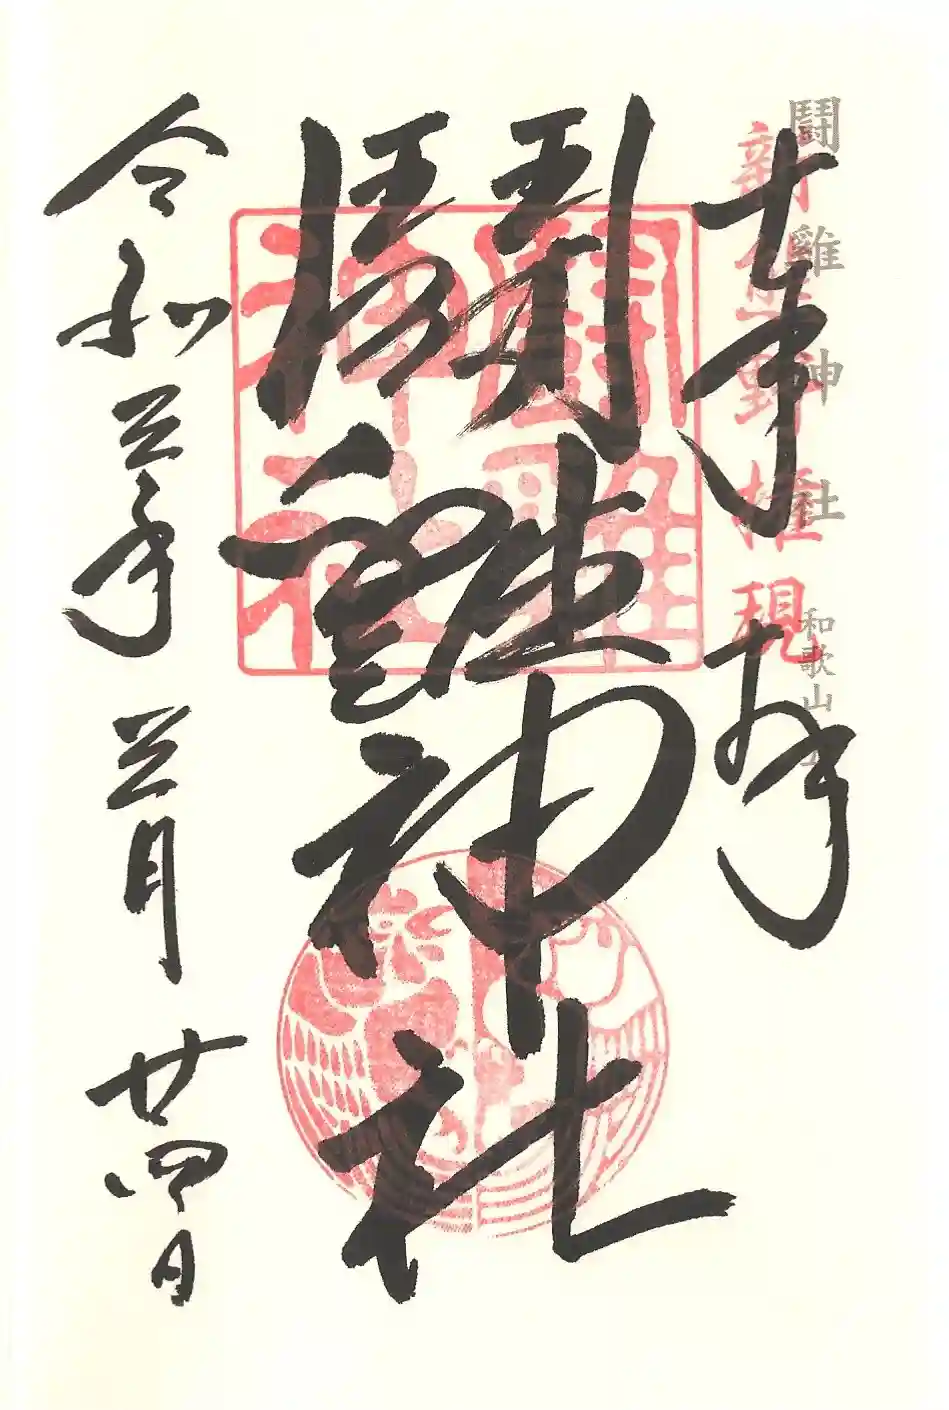 闘雞神社 和歌山
新熊野権現
奉拝
闘雞神社
闘雞神社
令和三年 三月 廿四日